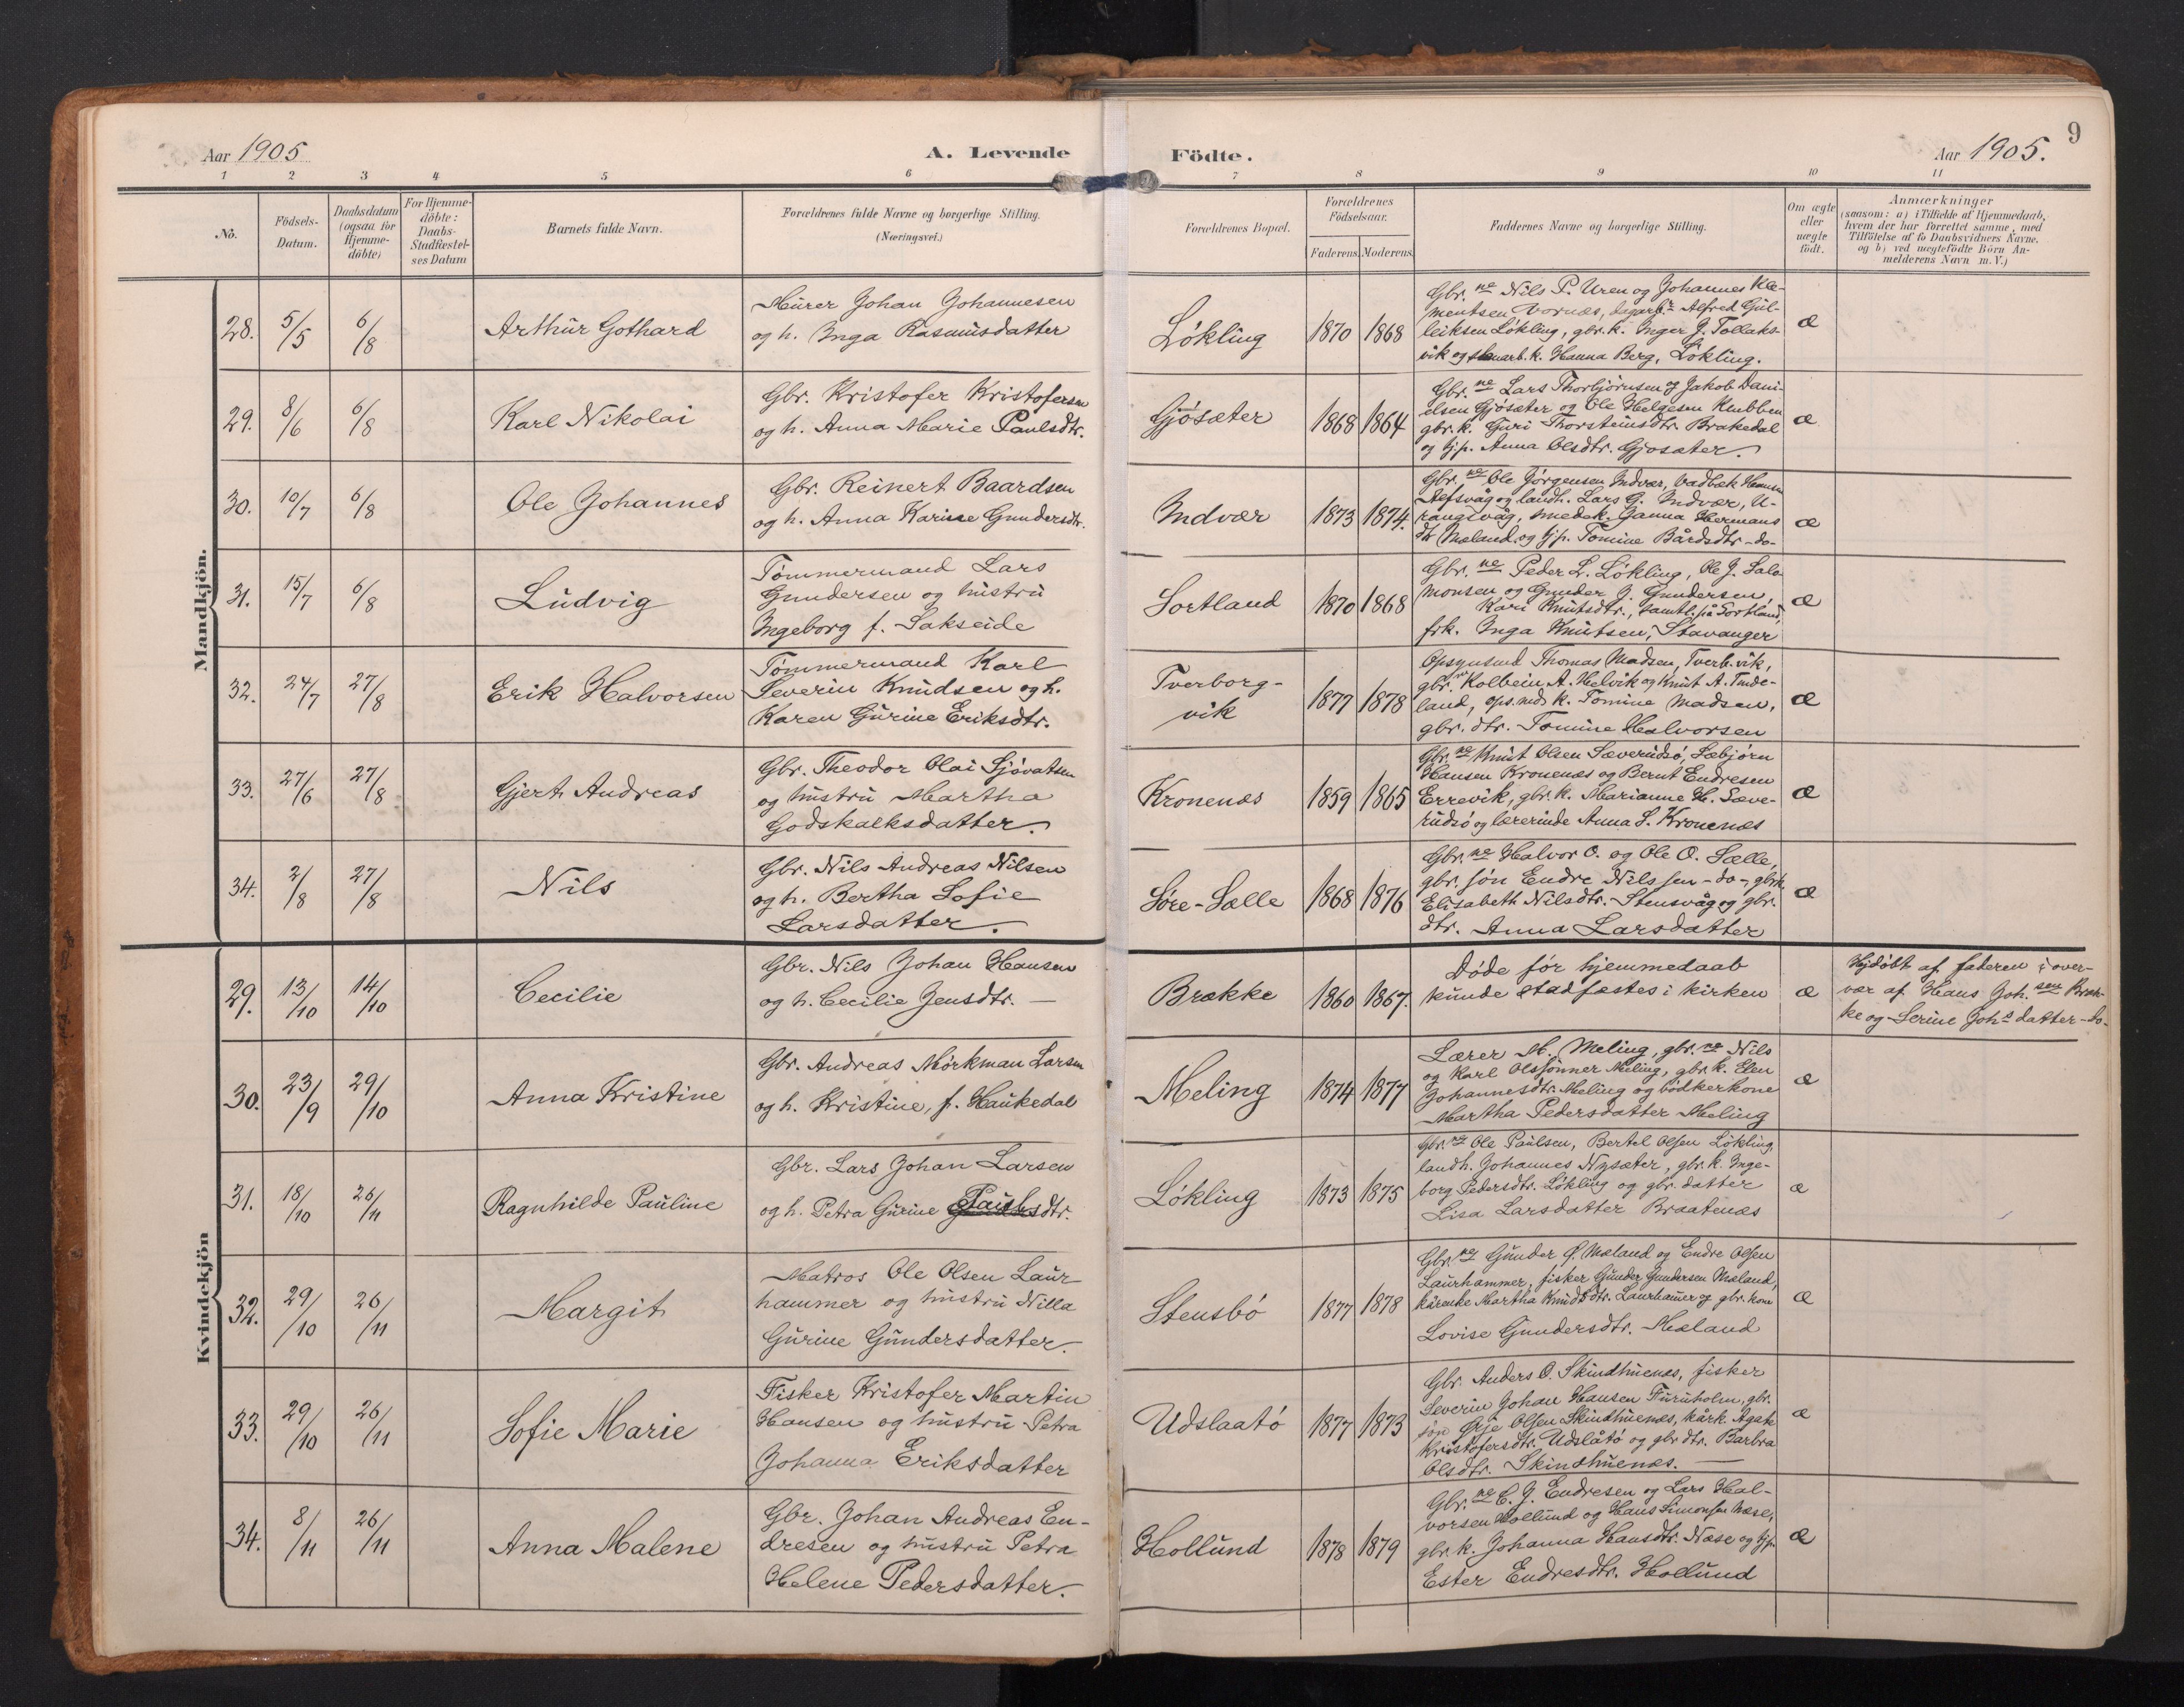 Aar 1905
A. Levende
Födte.
Aar 1905.
9
1 2 3 4 5 6 7 8 9 10 11
No.
Födsels-
Datum.
Daabsdatum
(ogsaa for
Hjemme-
döbte)
For Hjemme-
döbte:
Daabs-
Stadfæstel-
ses Datum
Barnets fulde Navn.
Forældrenes fulde Navne og borgerlige Stilling.
(Næringsvei.)
Forældrenes Bopæl.
Forældrenes
Födselsaar.
Faderens. Moderens.
Faddernes Navne og borgerlige Stilling.
Om ægte
eller
uægte
födt.
Anmærkninger
(saasom: a) i Tilfælde af Hjemmedaab,
hvem der har forrettet samme, med
Tilföielse af to Daabsvidners Navne.
og b) ved uægtefödte Börn An-
melderens Navn m. V.)
Mandkjön.
28. 5/5 6/8 Arthur Gothard
Murer Johan Johannesen
og h. Inga Rasmusdatter
Løkling 1870 1868
Gbr.ne Nils P. Uren og Johannes Kle-
mentsen Vornæs, Alfred Gul-
leiksen Løkling, gbr.k. Inger J. Tollaks-
vik og Hanna Berg, Løkling.
æ
29. 8/6 6/8 Karl Nikolai
Gbr. Kristofer Kristofersen
og h. Anna Marie Paulsdtr.
Gjøsæter 1868 1864
Gbr.ne Lars Thorbjørnsen og Jakob Dani-
elsen Gjøsæter og Ole Helgesen Klubben
gbr.k. Guri Thorsteinsdtr. Brakedal
og tjp. Anna Olsdtr. Gjøsæter.
æ
30. 10/7 6/8 Ole Johannes
Gbr. Reinert Baardsen
og h. Anna Karine Gundersdtr.
Indvær 1873 1874.
Gbr.ne Ole Jørgensen Indvær, Hansen
og landh. Lars G. Indvær, U-
rangsvåg, smedek. Janna Hermans
dtr Mæland. og tjp. Tomine Bårdsdtr -do-
æ
31. 15/7 6/8 Ludvig
Tømmermand Lars
Gundersen og hustru
Ingeborg f. Sakseide
Sortland 1870 1868
Gbr.ne Peder L. Løkling, Ole J. Salo-
monsen og Gunder J. Gundersen,
Kari Knutsdtr., samtl. på Sortland,
frk. Inga Knutsen, Stavanger
æ
32. 24/7 27/8 Erik Halvorsen
Tømmermand Karl
Severin Knudsen og h.
Karen Gurine Eriksdtr.
Tverborg-
vik
1877 1878
Opsynsmd Thomas Madsen, Tverb.vik,
gbr.ne Kolbein A. Helvik og Knut A. Tinde-
land, ops.mds k. Tomine Madsen,
gbr. dtr. Tomine Halvorsen
æ
33. 27/6 27/8 Gjert Andreas
Gbr. Theodor Olai Sjøvatsen
og hustru Martha
Godskalksdatter.
Kronenæs 1859 1865
Gbr.ne Knut Olsen Sæverudsø, Sæbjørn
Hansen Kronenæs og Bernt Endresen
Errevik, gbr.k. Marianne H. Sæve-
rudsø og lærerinde Anna S. Kronenæs
æ
34. 2/8 27/8 Nils
Gbr. Nils Andreas Nilsen
og h. Bertha Sofie
Larsdatter.
Søre-Sælle 1868 1876
Gbr.ne Halvor O. og Ole O. Sælle,
gbr. søn Endre Nilssen -do-, gbrk.
Elisabeth Nilsdtr. Stensvåg og gbr.
dtr. Anna Larsdatter
æ
Kvindekjön
29. 13/10 14/10 Cecilie
Gbr. Nils Johan Hansen
og h. Cecilie Jensdtr. —
Brække 1860 1867.
Døde før hjemmedaab
kunde stadfæstes i kirken
æ
Hjdøbt af faderen i over-
vær af Hans Joh.sen Bræk-
ke og Serine Johs datter -do-
30. 23/9 29/10 Anna Kristine
Gbr. Andreas Mørkman Larsen
og h. Kristine, f. Haukedal
Meling 1874 1877
Lærer M. Meling, gbr.ne Nils
og Karl Olssønner Meling, gbr.k. Elen
Johannesdtr. Meling og bødkerkone
Martha Pedersdatter Meling
æ
31. 18/10 26/11 Ragnhilde Pauline
Gbr. Lars Johan Larsen
og h. Petra Gurine Paulsdtr.
Løkling 1873 1875
Gbr.ne Ole Paulsen, Bertel Olsen Løkling,
landh. Johannes Nysæter, gbr.k. Inge-
borg Pedersdtr. Løkling og gbr. datter
Lisa Larsdatter Braatenæs
æ
32. 29/10 26/11 Margit
Matros Ole Olsen Laur-
hammer og hustru Nilla
Gurine Gundersdatter.
Stensbø 1877 1878
Gbr.ne Gunder Ø. Mæland og Endre Olsen
Laurhammer, fisker Gunder Gundersen Mæland,
Martha Knudsdtr. Laurhamer og gbr. kone
Lovise Gundersdtr. Mæland
æ
33. 29/10 26/11 Sofie Marie
Fisker Kristofer Martin
Hansen og hustru Petra
Johanna Eriksdatter
Udslaatø 1877 1873
Gbr. Anders O. Skindhuenæs, fisker
Severin Johan Hansen Furuholm, gbr.
søn Ørje Olsen Skindhuenæs, kårk. Agate
Kristofersdtr. Udslåtø og gbr dtr. Barbra
Olsdtr. Skindhuenæs. —
æ
34. 8/11 26/11 Anna Malene
Gbr. Johan Andreas En-
dresen og hustru Petra
Helene Pedersdatter.
Hollund 1878 1879
Gbr.ne E. J. Endresen og Lars Hal-
vorsen Hollund og Hans Simonsen Næse,
gbr.k. Johanna Hansdtr. Næse og tjp.
Ester Endresdtr. Hollund
æ